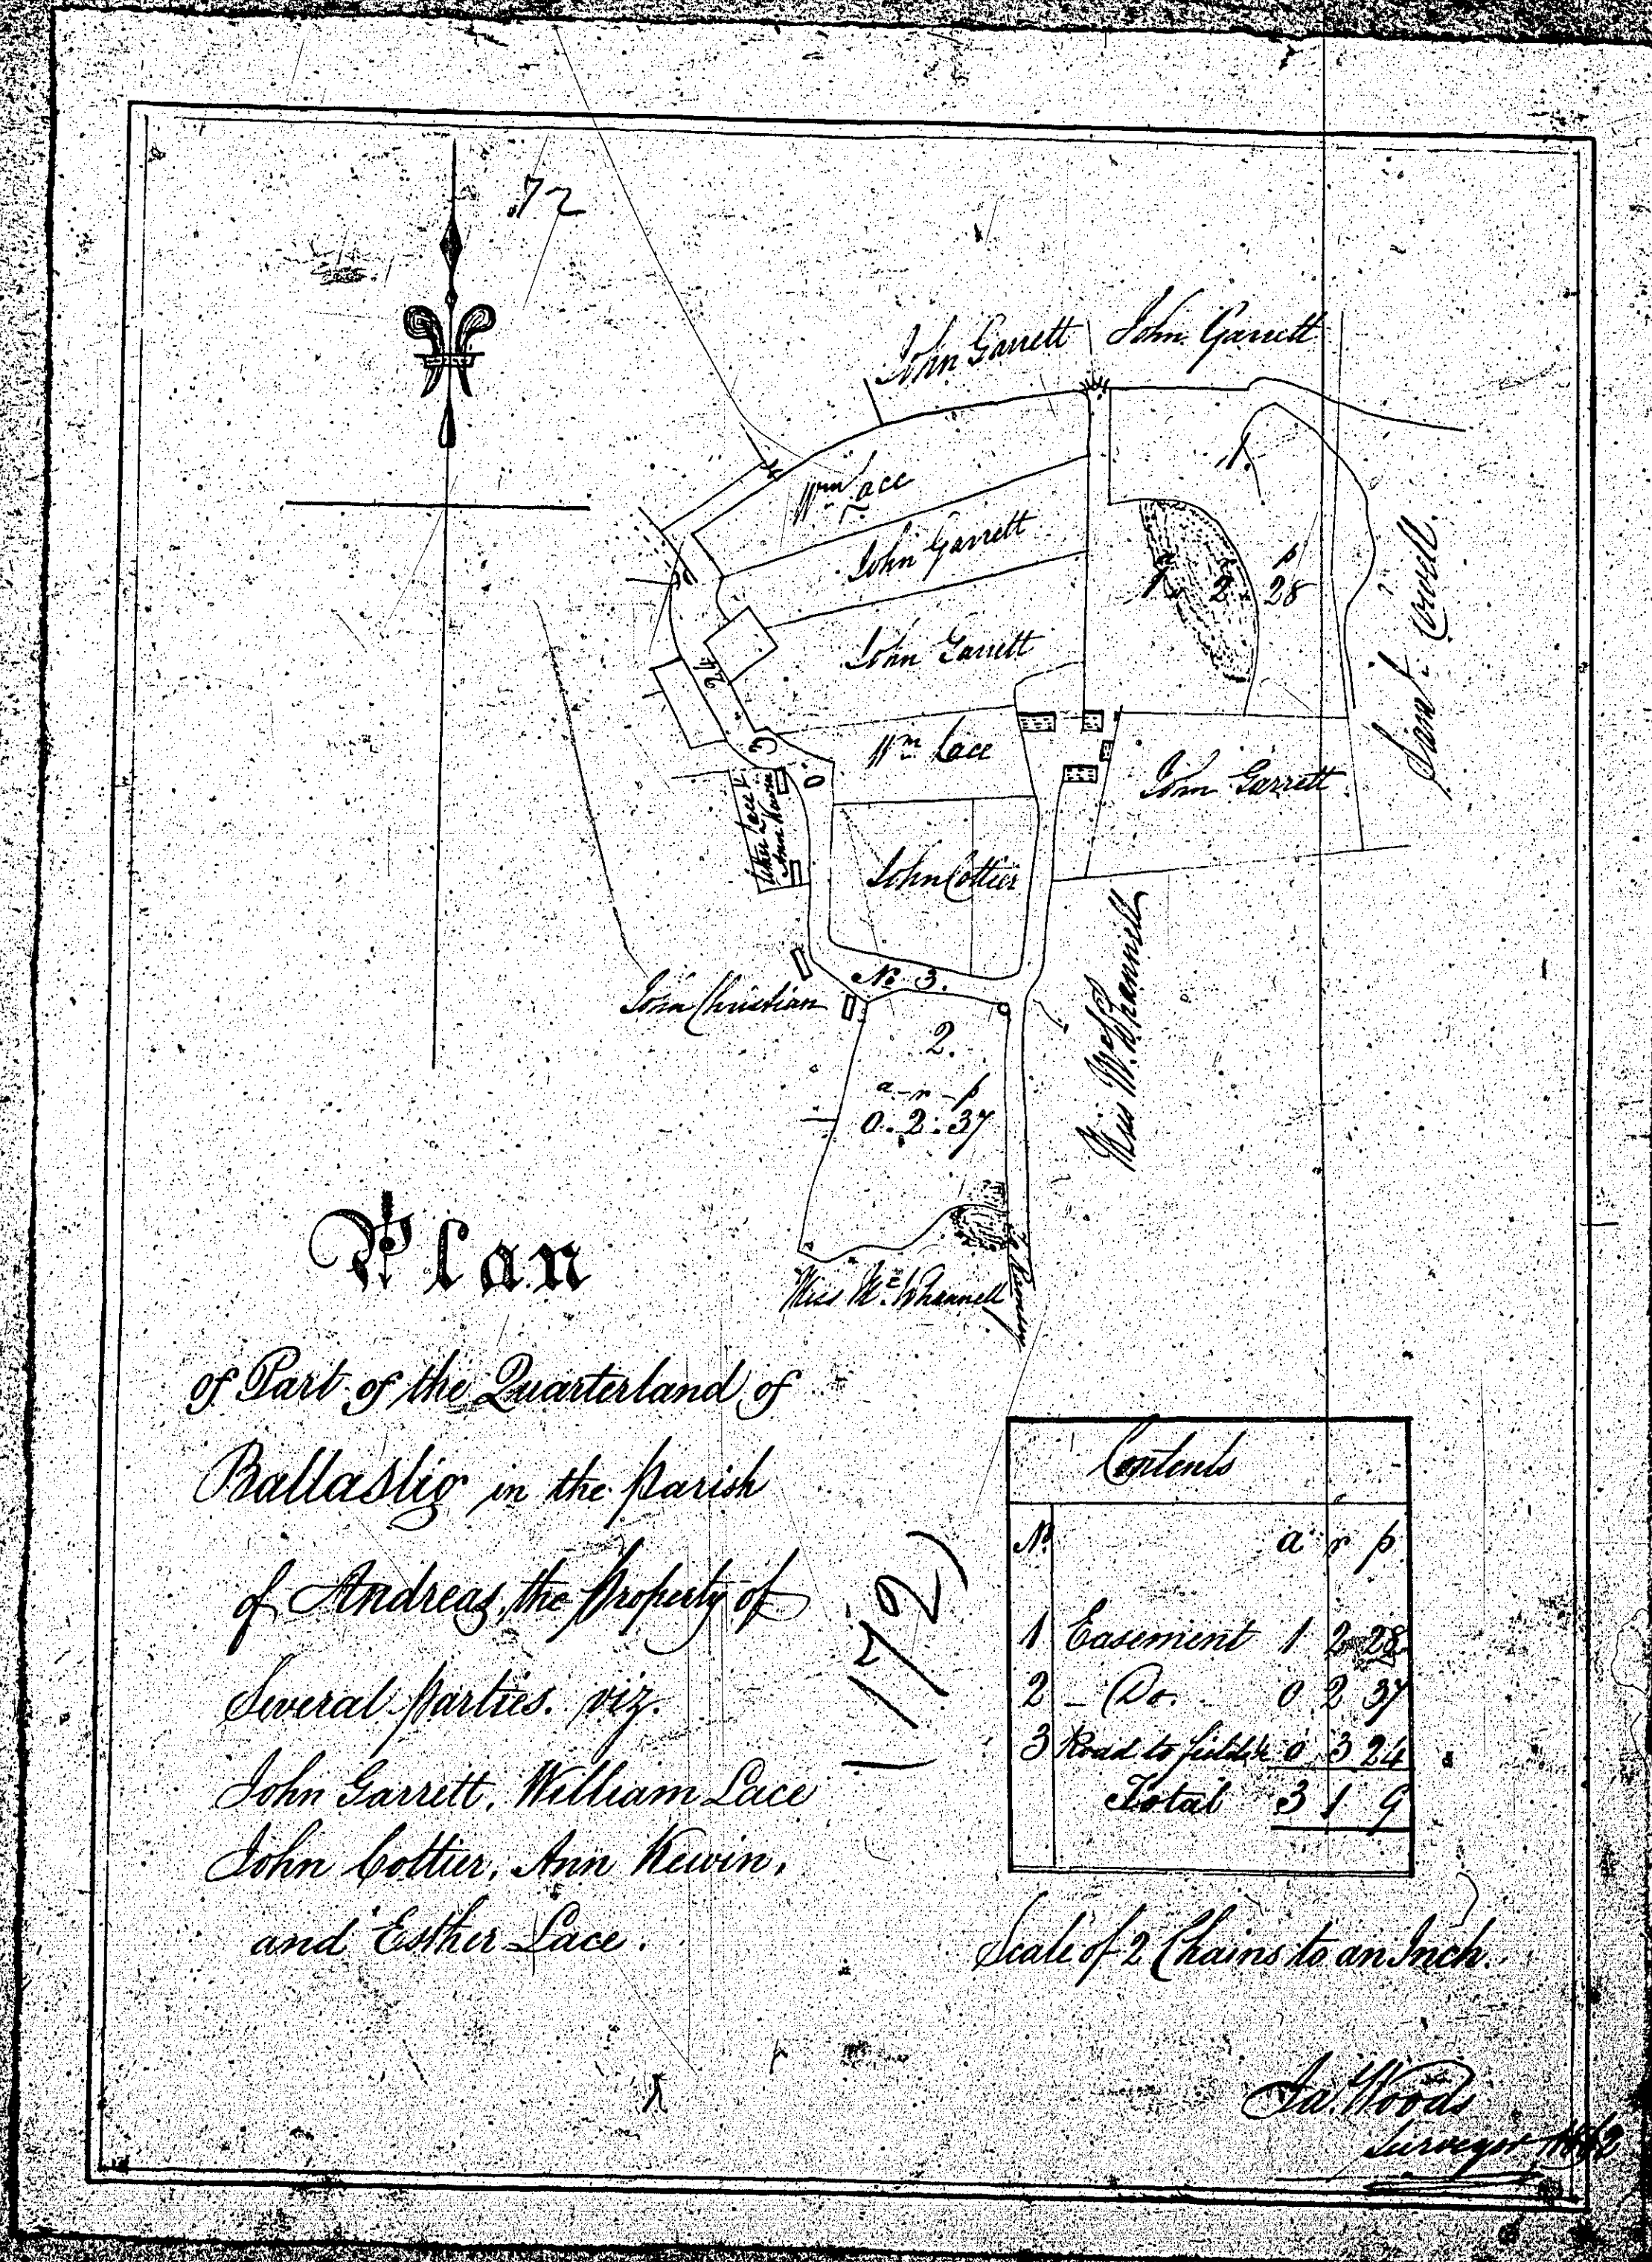 72
John Garrett John Garrett
Wm Lace
1.
John Garrett
2 28
p
John Garrett
Saml.
24
Wm Lace
John Garrett
Esther Lace &
Ann Kewin
John Cottier
No 3.
John Christian
Miss McWhannell
2.
a - r - p
0. 2. 37
Miss McWhannell
Plan
of Part of the Quarterland of
Ballaslig in the parish
of Andreas, the property of
Several parties. viz.
John Garrett, William Lace
John Cottier, Ann Kewin,
and Esther Lace.
(172)
Contents
No a r p
1 Easement 1 2 28
2 - Do. 0 2 37
3 Road to fields &c 0 3 24
Total 3 1 9
Scale of 2 Chains to an Inch.
Ja. Woods
Surveyor